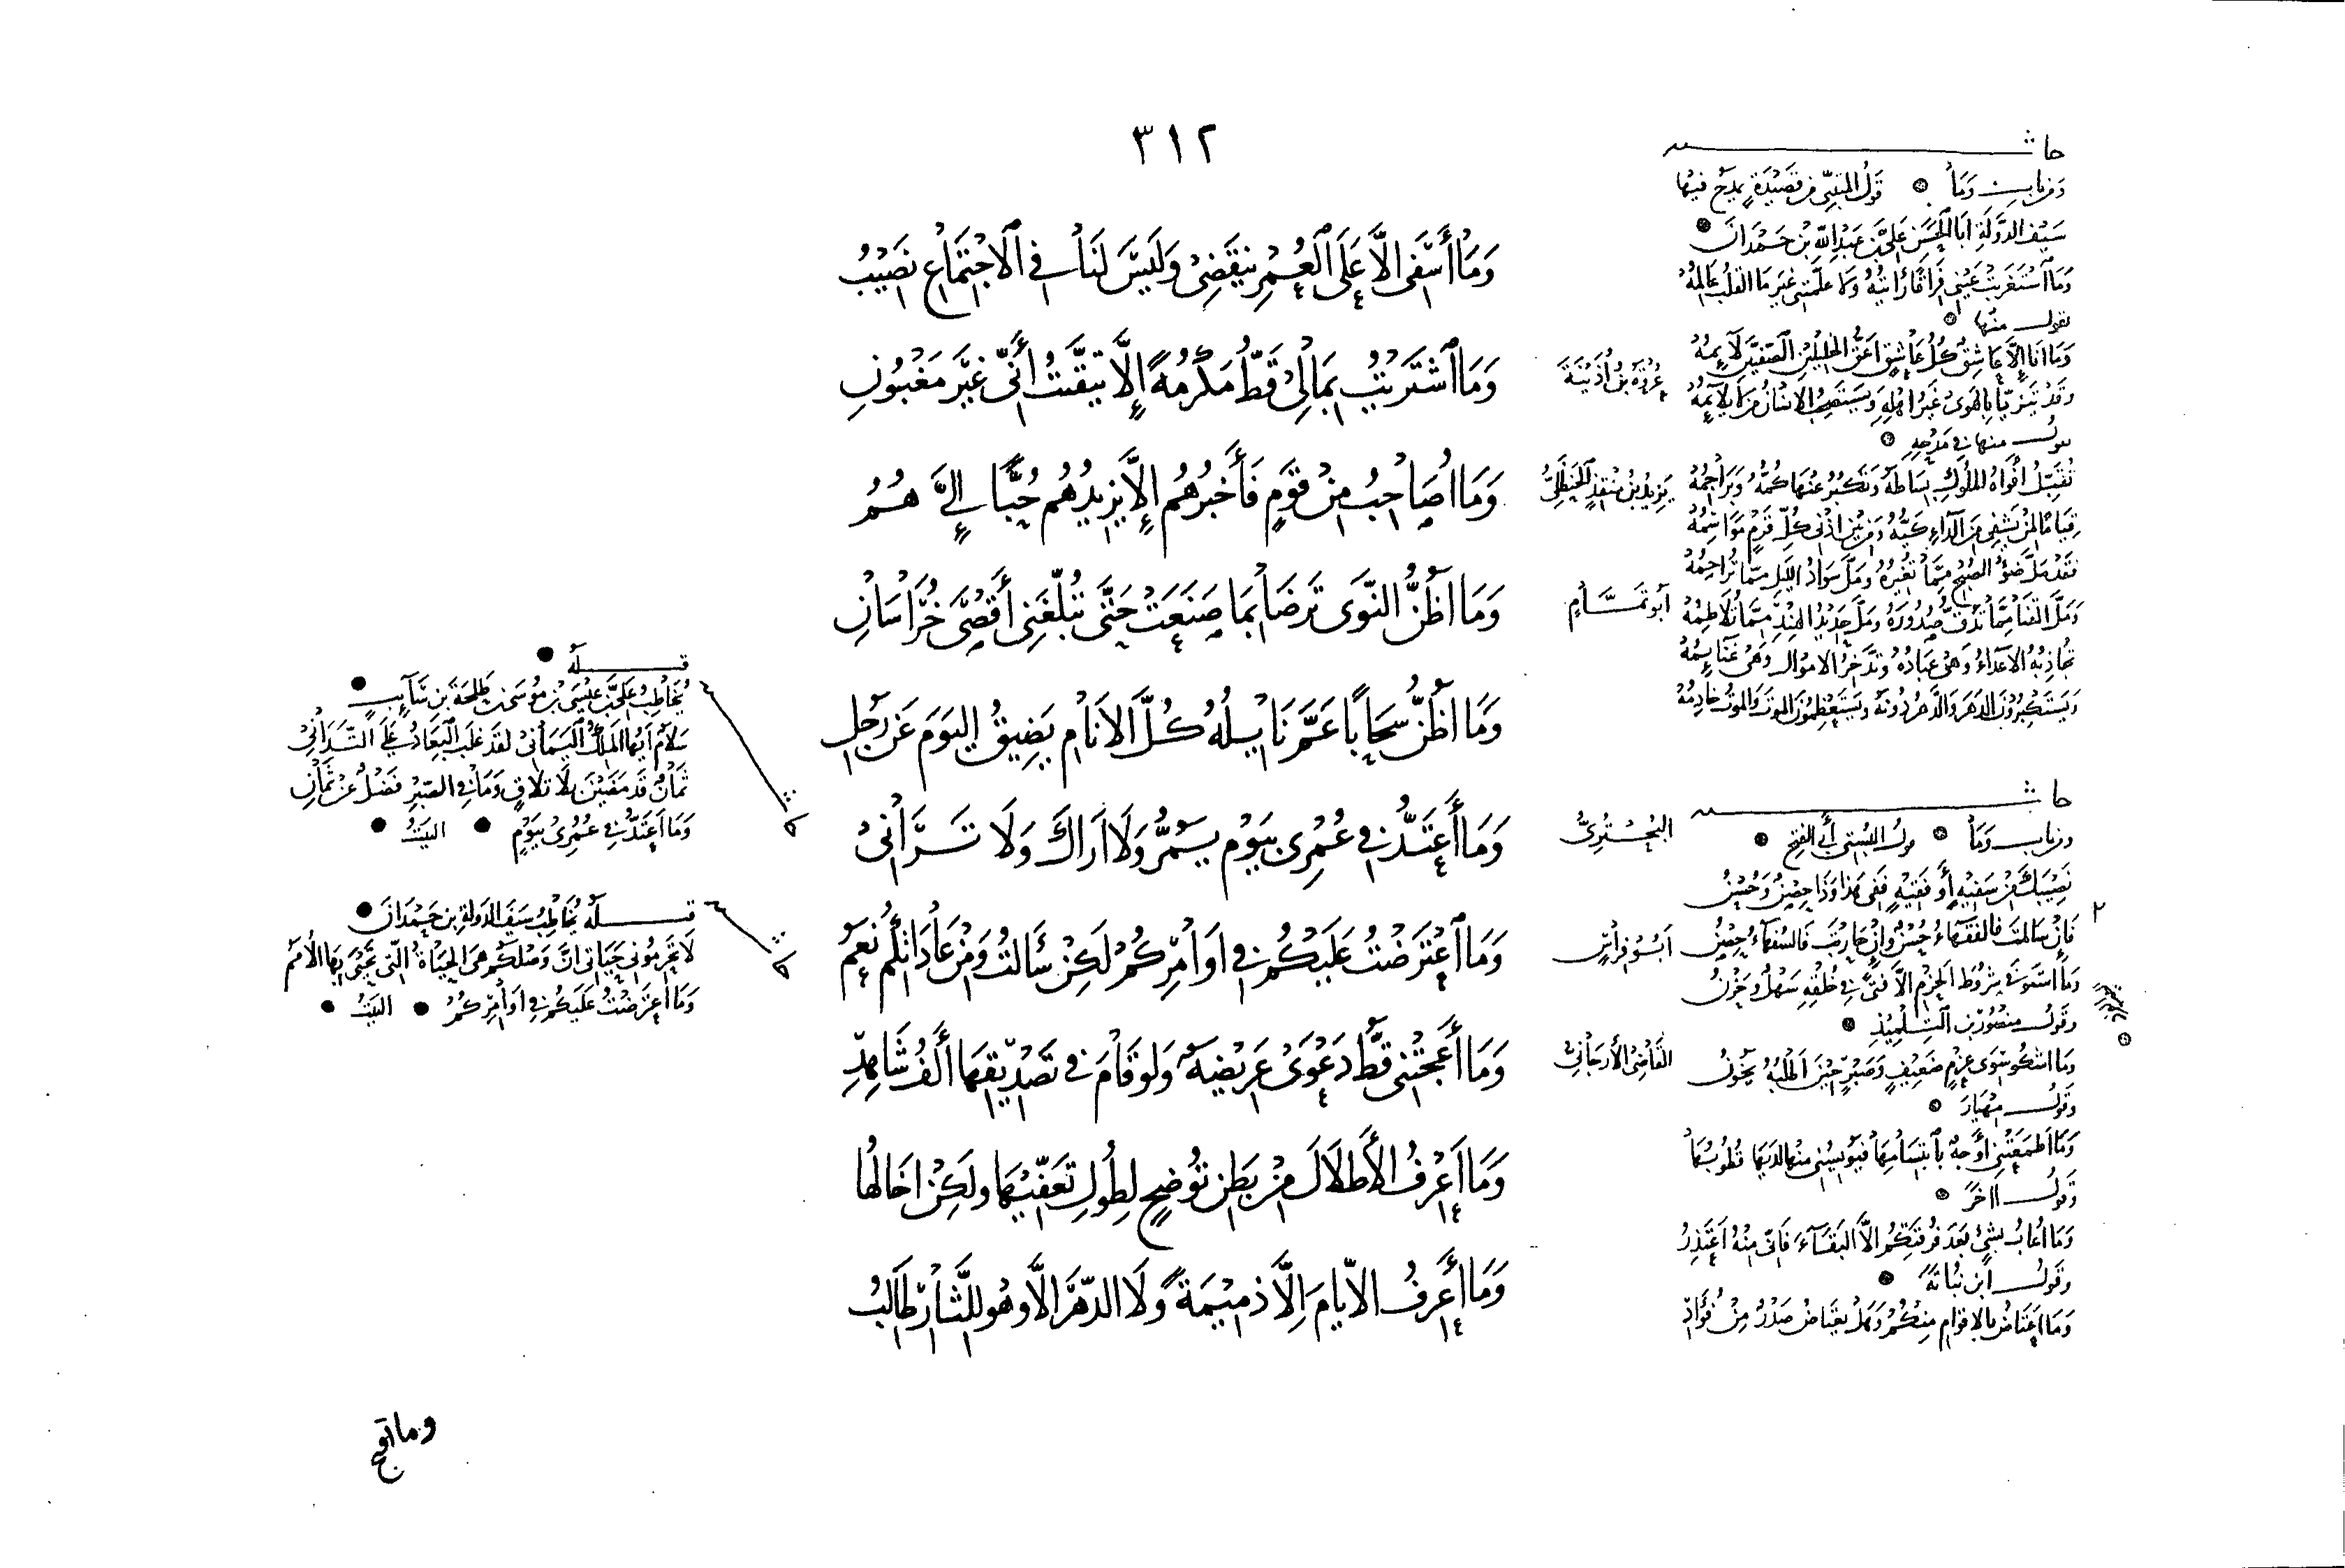 ٣١٢
وَمَا أَسَفَى الَّا عَلَى الْعُمْرِ يَنقَضِى وَلَيْسَ لَنَا فِى الْاجْتِمَاعِ نَصَيْبُ
وَمَا اشْتَرَيْتُ بِمَالِى قَطُّ مَكْرُمَةً إِلَّا تَيَقَّنْتُ أَنِّى غَيْرَ مَغْبُونِ
عُرْوَةُ بْنُ أُذَيْنَةَ
وَمَا اُصَاحِبُ مِنْ قَوْمٍ فَأَخْبُرُهُم إِلَّا يَزِيدُهُم حُبًّا إِلَىَّ هُمُ
يَزِيدُ بْنُ مُنْقِذٍ الْحَنْظَلِىُّ
وَمَا اَظُنُّ النَّوَى تَرضَا بِمَا صَنَعَتْ حَتَّى تُبَلِّغَنِى أَقْصَى خُرَاسَانِ
أَبُو تَمَّامٍ
وَمَا أَظُنُّ سَحَابًا عَمَّرَنَا يَسلُهُ كُلَّ الاَنَامِ يَضِيقُ اليَوَمَ عَن رَجُلِ
وَمَا أَعْتَدُّ فِى عُمْرِى بِيَوْمٍ يَمُرُّ وَلَا اَرَاكَ وَلَا تَرَانِى
البُحْتُرِىُّ
وَمَا اعْتَرَضْتُ عَلَيْكُمْ فِى اَوَامِرِكُمْ لَكِنْ سَأَلتُ وَمِنْ عَادَاتِكُم نَعَمْ
أَبُو فِرَاسٍ
وَمَا أَعْجَبَتْنِى قَطُّ دَعْوَى عَرِيْضَةٌ وَلَو قَامَ فى تَصْدِيْقِهَا أَلفُ شَاهِدِ
القَاضِى الأَرجَانِى
وَمَا اَعْرِفُ الأَطلَالَ مِنْ بَطنِ تُوْضِحٍ لِطُولِ تَعَفِّيْهَا ولَكِنْ اَخَالُهَا
وَمَا أَعْرِفُ الاَيَّامَ اِلَّا ذَمِيْمَةً وَلَا الدَّهْرَ الَّا وهُو لِلثَّارِ طَالِبُ
حاشـــــيه
وَمن باب وَمَا قَولُ المتَنَبِّى مِن قَصِيْدَةٍ يَمدَحُ فِيْهَا
سَيْفَ الدَّوْلَةِ اَبَا الْحَسَنِ عَلِىَّ بْنَ عَبْدِ اللهِ بْنِ حَمْدَانَ
وَمَا اسْتَغْرَبَتْ عَيْنِى فِرَاقًا رَايْتُهُ وَلا عَلَّمَتْنِى غَيْرَ مَا القَلْبُ عَالِمُهْ
يقول منها
وَمَا انَا اِلَّا عَاشِقٌ كُلُّ عَاشِقٍ اَعَقُّ الخَلِيلَيْنِ الصَّفِيَّيْنِ لَائِمُهْ
وَقَدْ يَتَزَيَّا بِالهَوى غَيْرُ اهْلِهِ وَيَسْتَصْحِبُ الاِنسَانُ مَن لَا يُلَائِمُهْ
يقول منها فى مَدْحِهِ
تُقَبِّلُ اَفْوَاهُ المُلُوكِ بِسَاطَهُ وَتَكْبُرُ عَنْهَا كُمُّهُ وَبَرَاجِمُهْ
قِيَامًا لِمَنْ يَشْفِى مِنَ الدَّاءِ كَيُّهُ وَمَنْ بَيْنَ اذْنَى كُلِّ قَرْمٍ مَوَاسِمُهْ
فقَد مَلَّ ضَوْءُ الصُّبْحِ مِمَّا تُغِيْرُهُ وَمَلَّ سَوَادُ اللَّيْلِ مِمَّا تُزَاحِمُهْ
وَمَلَّ القَنَا مِمَّا تَدُقُّ صُدُورَهُ وَمَلَّ حَدِيْدُ الهِنْدِ مِمَّا تُلَاطِمُهْ
تُحَارِبُهُ الاَعْدَاءُ وَهْىَ عِبَادُهُ وَتَدَّخِرُ الاَمْوَالَ وَهْىَ غَنَائِمُهْ
وَيَسْتَكْبِرُوْنَ الدَّهرَ وَالدَّهرُ دُونَهُ وَيَسْتَعْظِمُوْنَ الموتَ وَالموتُ خَادِمُهْ
حاشـــــيه
ومن باب وَمَا قول البُسْتِى أَبِى الفَتْحِ
نَصِيْبُكَ مِنْ سَفِيْهٍ أَو فَقِيْهٍ فَفِى هَذَا وَذَا حِصْنٌ وَحُسْنُ
فَاِنْ سَالمتَ فَالفُقَهَاءُ حُسْنٌ وَاِنْ حَارَبْتَ فَالسُّفَهَاءُ حِصْنُ
وَمَا اسْتَوفَى شُرُوطَ الحَزْمِ اِلَّا فَتًى فِى خُلْقِهِ سَهْلٌ وحَزْنُ
وقول منصُوْر بن التِّلْمِيْذِ
وَمَا اشكُو سِوَى عَزْمٍ ضَعِيْفٍ وَصَبْرٍ حِيْنَ اَطْلُبُهُ يَخُوْنُ
وَقول مِهْيَارَ
وَمَا اَطمَعَتْنِى اَوْجُهٌ بِابْتِسَامِهَا فَيُؤيِسُنِى مِنْهَا لَدَيْهَا قُطُوبُهَا
وَقَول اخَرَ
وَمَا اُعَابُ بِشَئٍ بَعْدَ فُرقَتِكُمُ اِلَّا البَقَاءَ فَاِنِّى مِنْهُ اَعْتَذِرُ
وقول ابن نُبَاتَةَ
وَمَا اَعْتَاضُ بِالاَقوَامِ مِنكُمْ وَهَلْ يَعْتَاضُ صَدْرٌ مِنْ فُؤَادِ
قَبـــــلَهُ
يُخَاطِبُ عَلِىَّ بْنَ عِيْسَى بْنِ مُوسَى بن طَلْحَةَ بن سَائِبٍ
سَلَامٌ اَيُّهَا المَلِكُ اليَمَانِى لَقَد غَلَبَ البِعَادُ عَلَى التَّدَانِى
ثَمَانٌ قَد مَضَيْنَ بِلَا تَلَاقٍ وَمَا فِى الصَّبْرِ فَضْلٌ عَنْ ثَمَانِ
وَمَا اَعْتَدُّ فِى عُمْرِى بِيَوْمٍ البَيْتُ
قَبـــــلَهُ يُخَاطِبُ سَيْفَ الدَولَةِ بن حَمْدَانَ
لَا تَحْرِمُونِى حَيَاتِى اِنَّ وَصْلَكُم هِىَ الحَيَاةُ الَّتِى تَحْيَى بِهَا الأُمَمُ
وَمَا اعْتَرَضْتُ عَلَيكُمْ فِى اَوَامِرِكُمْ البَيْتُ